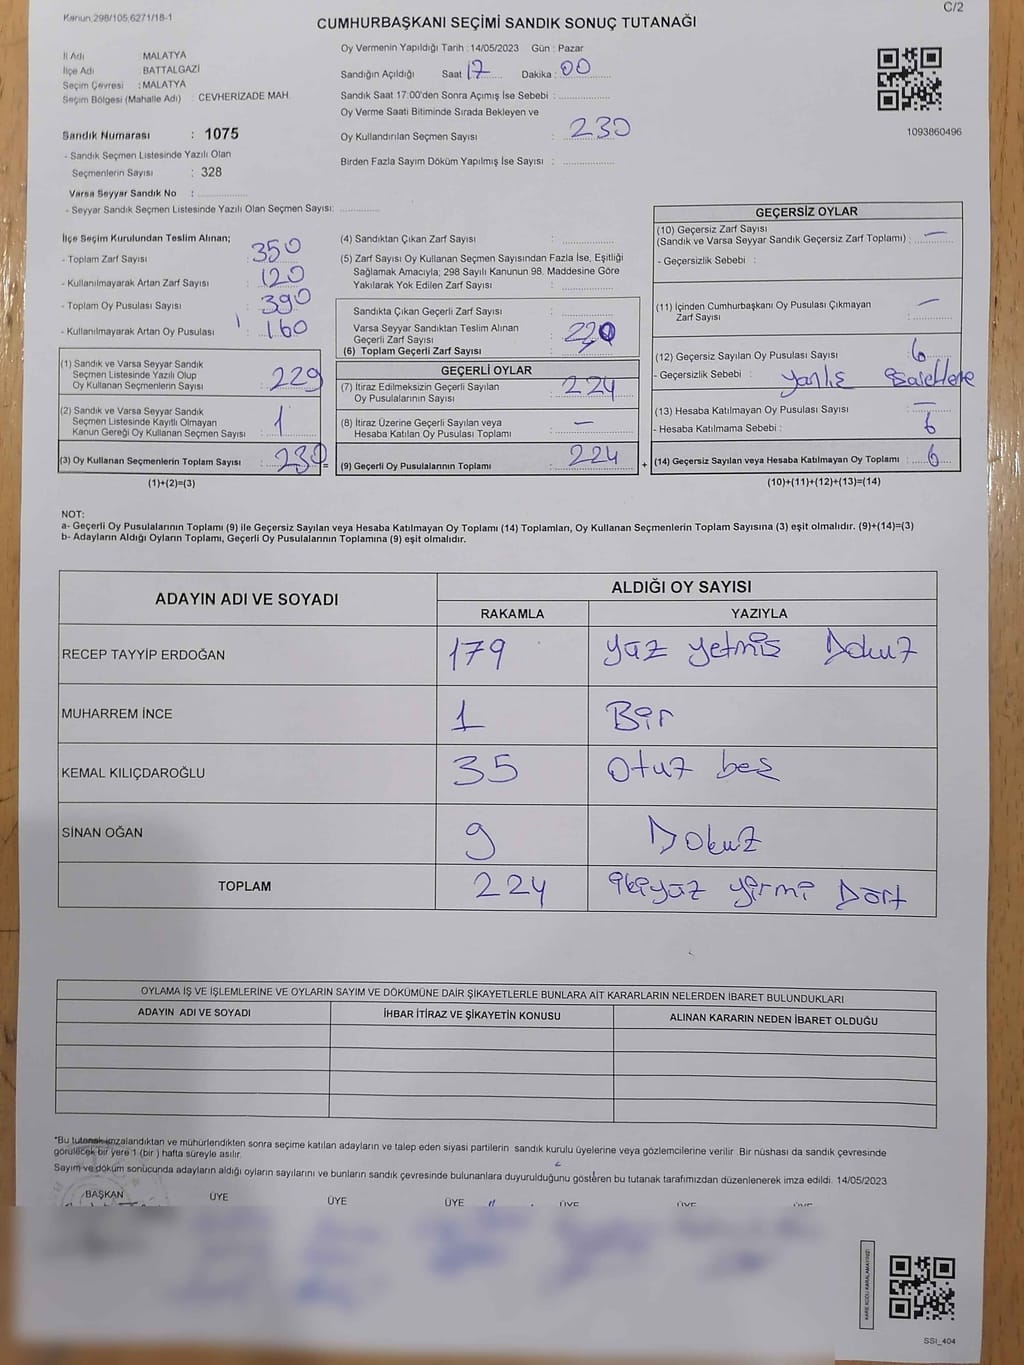 Kanun,298/105,6271/18-1
C/2
CUMHURBAŞKANI SEÇİMİ SANDIK SONUÇ TUTANAĞI
İl Adı : MALATYA
İlçe Adı : BATTALGAZİ
Seçim Çevresi : MALATYA
Seçim Bölgesi (Mahalle Adı) : CEVHERİZADE MAH.
Sandık Numarası : 1075
- Sandık Seçmen Listesinde Yazılı Olan
Seçmenlerin Sayısı : 328
Varsa Seyyar Sandık No :
- Seyyar Sandık Seçmen Listesinde Yazılı Olan Seçmen Sayısı:
Oy Vermenin Yapıldığı Tarih : 14/05/2023 Gün : Pazar
Sandığın Açıldığı Saat : 17 Dakika : 00
Sandık Saat 17:00'den Sonra Açımış İse Sebebi :
Oy Verme Saati Bitiminde Sırada Bekleyen ve
Oy Kullandırılan Seçmen Sayısı : 230
Birden Fazla Sayım Döküm Yapılmış İse Sayısı :
1093860496
İlçe Seçim Kurulundan Teslim Alınan;
- Toplam Zarf Sayısı : 350
- Kullanılmayarak Artan Zarf Sayısı : 120
- Toplam Oy Pusulası Sayısı : 390
- Kullanılmayarak Artan Oy Pusulası : 160
(1) Sandık ve Varsa Seyyar Sandık
Seçmen Listesinde Yazılı Olup
Oy Kullanan Seçmenlerin Sayısı : 229
(2) Sandık ve Varsa Seyyar Sandık
Seçmen Listesinde Kayıtlı Olmayan
Kanun Gereği Oy Kullanan Seçmen Sayısı : 1
(3) Oy Kullanan Seçmenlerin Toplam Sayısı : 230
(1)+(2)=(3)
(4) Sandıktan Çıkan Zarf Sayısı :
(5) Zarf Sayısı Oy Kullanan Seçmen Sayısından Fazla İse, Eşitliği
Sağlamak Amacıyla; 298 Sayılı Kanunun 98. Maddesine Göre
Yakılarak Yok Edilen Zarf Sayısı :
Sandıkta Çıkan Geçerli Zarf Sayısı :
Varsa Seyyar Sandıktan Teslim Alınan
Geçerli Zarf Sayısı :
(6) Toplam Geçerli Zarf Sayısı
GEÇERLİ OYLAR
(7) İtiraz Edilmeksizin Geçerli Sayılan
Oy Pusulalarının Sayısı : 224
(8) İtiraz Üzerine Geçerli Sayılan veya
Hesaba Katılan Oy Pusulası Toplamı : —
(9) Geçerli Oy Pusulalarının Toplamı : 224
GEÇERSİZ OYLAR
(10) Geçersiz Zarf Sayısı
(Sandık ve Varsa Seyyar Sandık Geçersiz Zarf Toplamı) : —
- Geçersizlik Sebebi :
(11) İçinden Cumhurbaşkanı Oy Pusulası Çıkmayan
Zarf Sayısı : —
(12) Geçersiz Sayılan Oy Pusulası Sayısı : 6
- Geçersizlik Sebebi : yanlış
(13) Hesaba Katılmayan Oy Pusulası Sayısı : —
- Hesaba Katılmama Sebebi : 6
+ (14) Geçersiz Sayılan veya Hesaba Katılmayan Oy Toplamı : 6
(10)+(11)+(12)+(13)=(14)
NOT:
a- Geçerli Oy Pusulalarının Toplamı (9) ile Geçersiz Sayılan veya Hesaba Katılmayan Oy Toplamı (14) Toplamları, Oy Kullanan Seçmenlerin Toplam Sayısına (3) eşit olmalıdır. (9)+(14)=(3)
b- Adayların Aldığı Oyların Toplamı, Geçerli Oy Pusulalarının Toplamına (9) eşit olmalıdır.
ADAYIN ADI VE SOYADI ALDIĞI OY SAYISI
RAKAMLA YAZIYLA
RECEP TAYYİP ERDOĞAN 179 yüz yetmiş Dokuz
MUHARREM İNCE 1 Bir
KEMAL KILIÇDAROĞLU 35 Otuz beş
SİNAN OĞAN 9 Dokuz
TOPLAM 224 ikiyüz yirmi Dört
OYLAMA İŞ VE İŞLEMLERİNE VE OYLARIN SAYIM VE DÖKÜMÜNE DAİR ŞİKAYETLERLE BUNLARA AİT KARARLARIN NELERDEN İBARET BULUNDUKLARI
ADAYIN ADI VE SOYADI İHBAR İTİRAZ VE ŞİKAYETİN KONUSU ALINAN KARARIN NEDEN İBARET OLDUĞU
*Bu tutanak imzalandıktan ve mühürlendikten sonra seçime katılan adayların ve talep eden siyasi partilerin sandık kurulu üyelerine veya gözlemcilerine verilir. Bir nüshası da sandık çevresinde
görülecek bir yere 1 (bir) hafta süreyle asılır.
Sayım ve döküm sonucunda adayların aldığı oyların sayılarını ve bunların sandık çevresinde bulunanlara duyurulduğunu gösteren bu tutanak tarafımızdan düzenlenerek imza edildi. 14/05/2023
BAŞKAN ÜYE ÜYE ÜYE ÜYE ÜYE ÜYE
KARE KODU KARALAMAYINIZ!
SSI_404